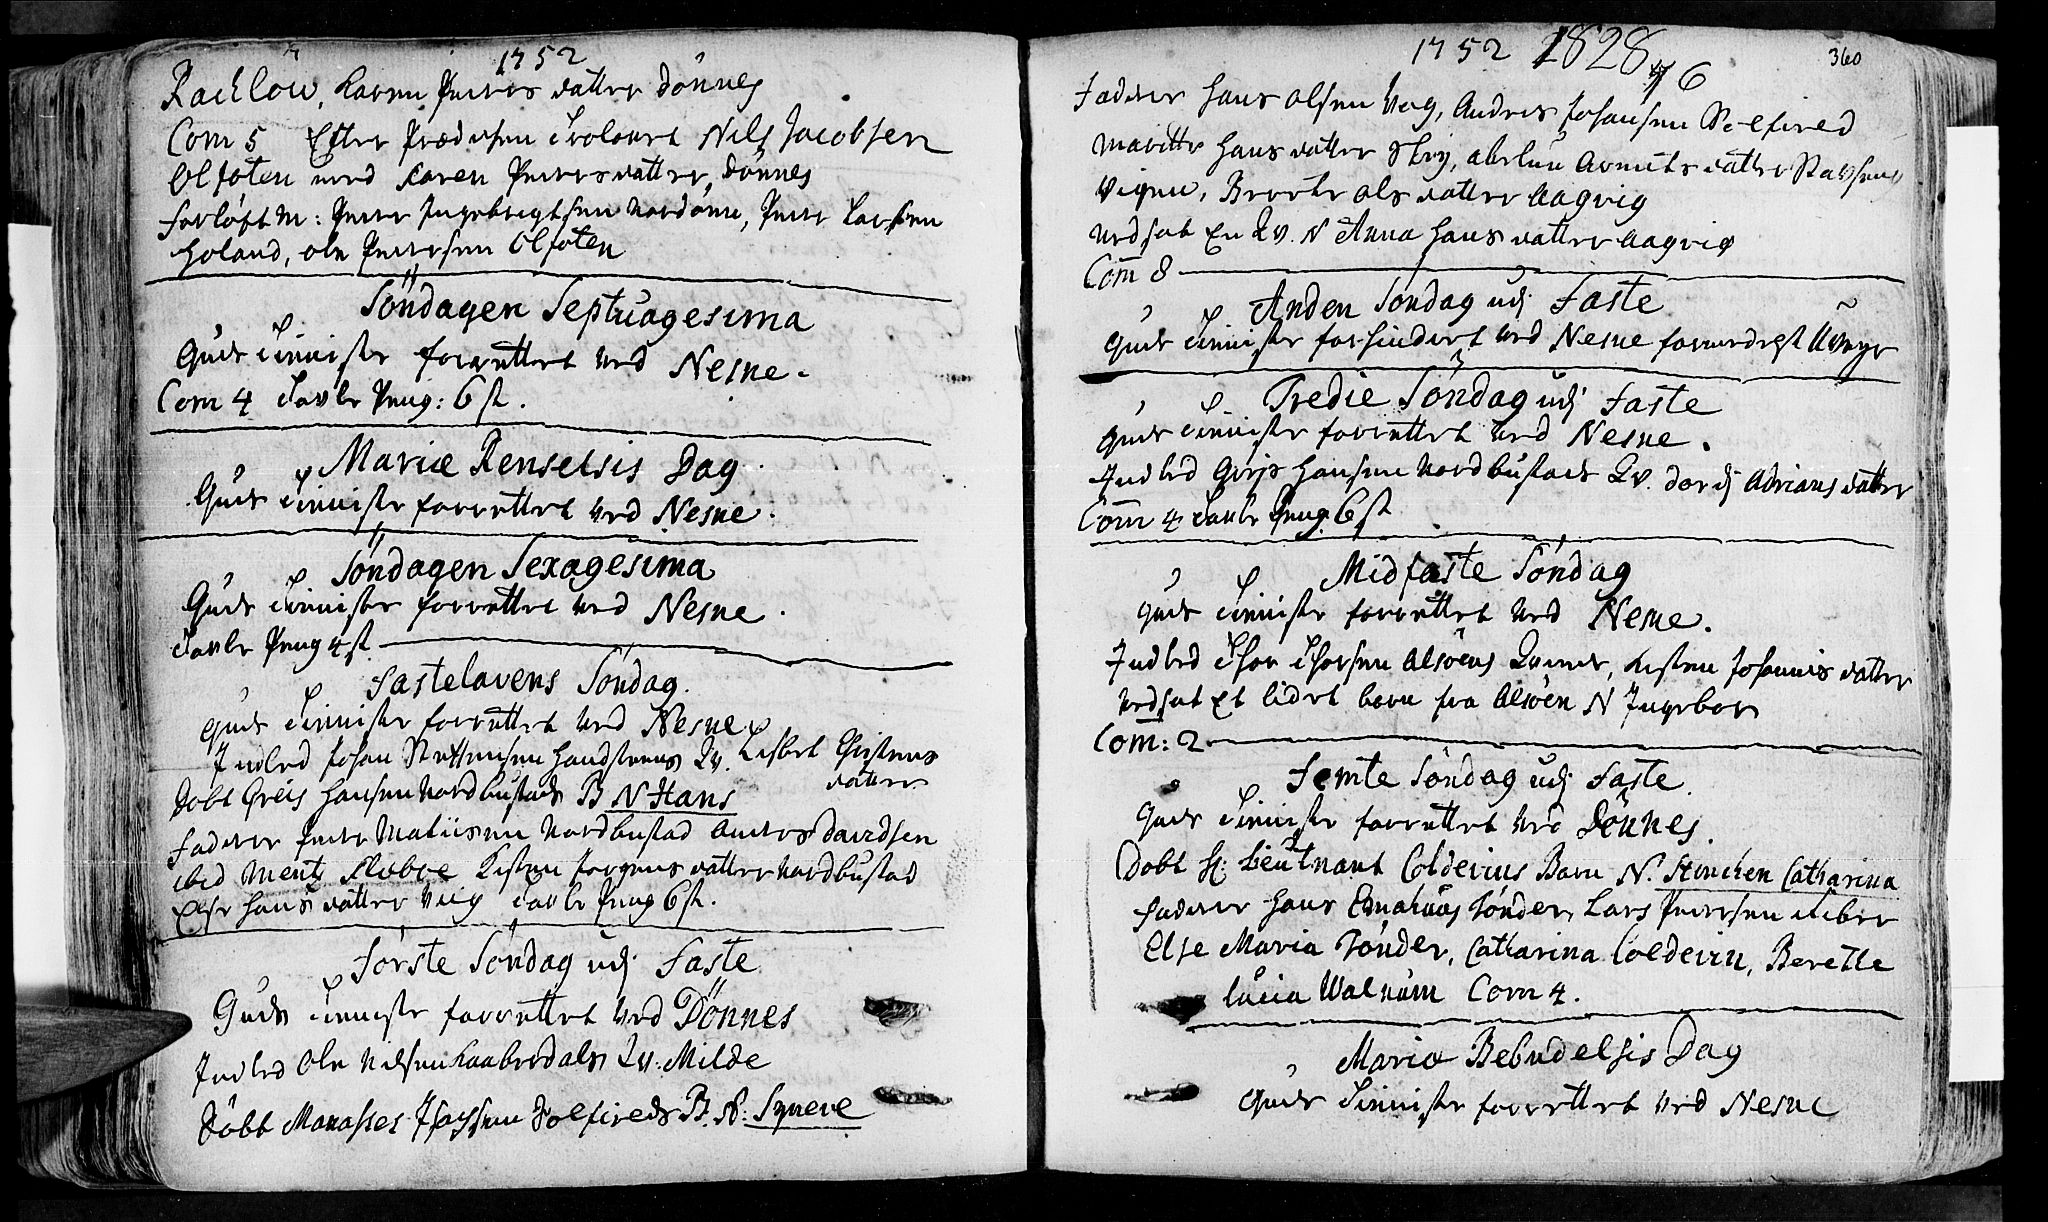 1752
Rachlöu, Karen Peters datter Dönnes
Com 5 Efter Prædiken Troloved Nils Jacobsen
Olfoten med Karen Petersdatter, Dönnes
forløft M: Peter Ingebrigtsen Nordome, Peter Larsen
Holand, Ole Pettersen Olfoten
Söndagen Septuagesima
Guds Tieniste forrettet ved Nesne.
Com 4 Tavle Peng: 6 st.
Mariæ Renselsis Dag.
Guds Tieniste forrettet ved Nesne.
Söndagen Sexagesima
Guds Tieniste forrettet ved Nesne.
Tavle Peng 4 st
Fastelavens Söndag.
Guds Tieniste forrettet ved Nesne
Indled Johan Handsteens Qv. Lisbet Christens
datter
Döbt Greis Hansen Nordbustads B N Hans
Faderer Peter Matiisen Nordbustad Anders Davidsen
ibid Mentz Kisten Jørgens datter Nordbustad
Else Hans datter Veig Tavle Peng 6 st.
Første Söndag udj Faste
Guds Tieniste forrettet ved Dönnes
Indled Ole Nilsen Kaaberdals Qv. Milde
Döbt Manasses Isachsen Solfieeds B. N: Syneve
1752 1828 76
360
Faderer Hans Olsen Veg, Andres Johansen Solfieed
Maritte Hans datter Skey, Arents datter Stafsens
Vigen, Beerte Ols datter Aagvig
Nedsat En Qv. N Anna Hans datter Aagvig
Com 8
Anden Söndag udj Faste
Guds Tieniste forhindert ved Nesne formedelst Uveyr
Tredie Söndag udj Faste
Guds Tieniste forrettet ved Nesne.
Indled Greis Hansen Nordbustads Qv. Dordj Adrians datter
Com 4 Tavle Peng. 6 st
Midfaste Söndag
Guds Tieniste forrettet ved Nesne.
Indled Thor Thorsen Alsöens Qvinde, Kisten Johannis datter
Nedsat Et lidet barn fra Alsöen N Ingebor
Com: 2
Femte Söndag udj Faste.
Guds Tieniste forrettet ved Dönnes.
Döbt Hr: Lieutnant Coldevins Barn N. Stincken Catharina
Faderer Hans Tönder, Lars Petersen
Else Maria Tönder, Catharina Coldevin, Berette
Lucia Walnum Com 4.
Mariæ Bebudelsis Dag
Guds Tieniste forrettet ved Nesne